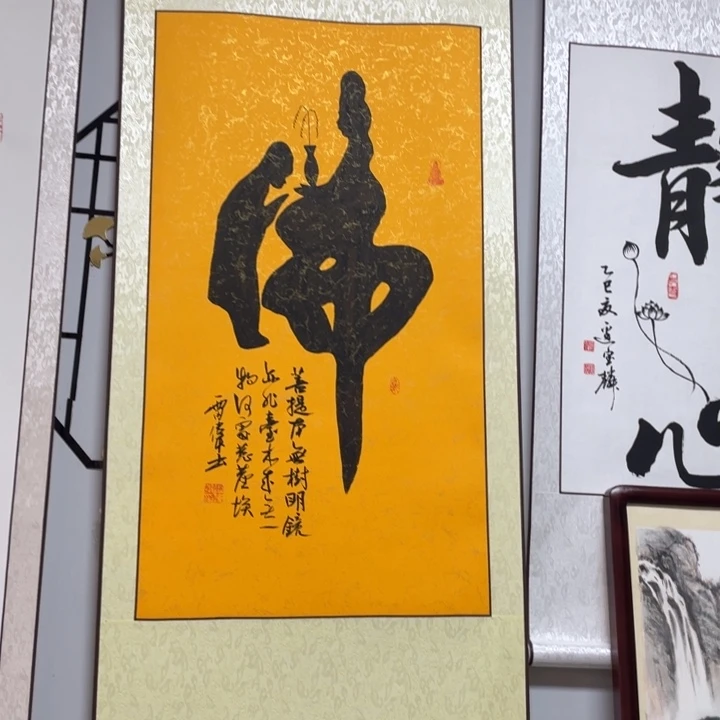 佛
菩提本無樹明鏡
亦非臺本來无一
物何處惹塵埃
靜
心
乙巳夏